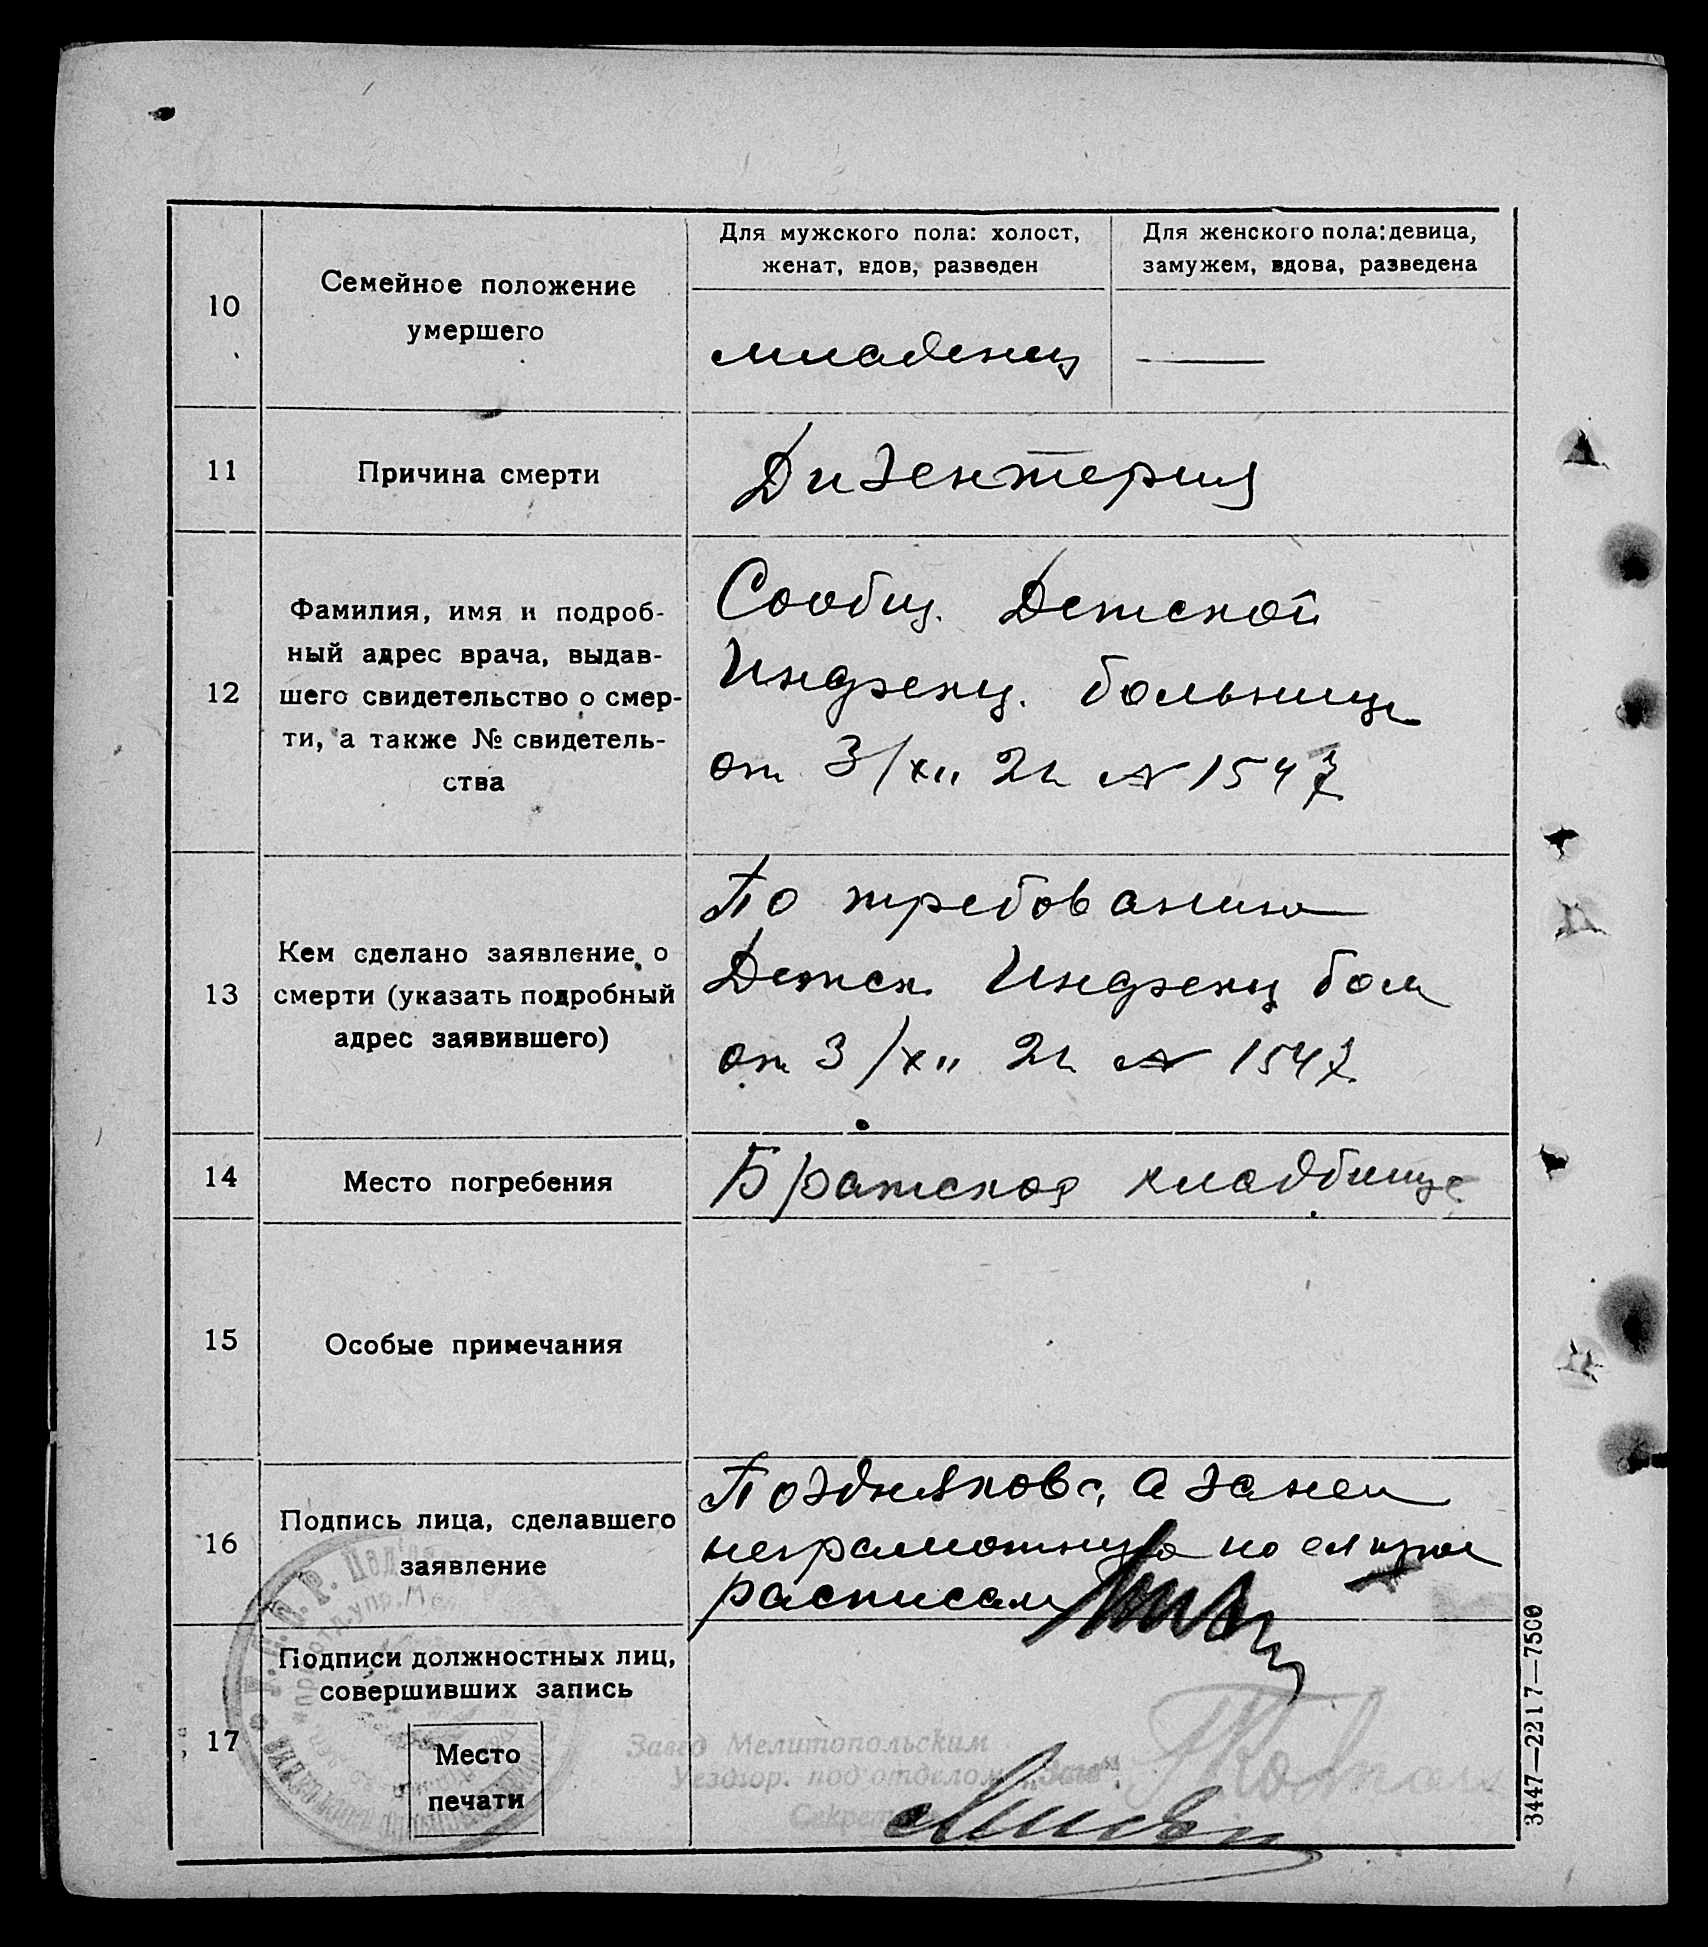 10
Семейное положение
умершего
Для мужского пола: холост,
женат, вдов, разведен
Для женского пола: девица,
замужем, вдова, разведена
младенец
11
Причина смерти
Дизентерия
12
Фамилия, имя и подроб-
ный адрес врача, выдав-
шего свидетельство о смер-
ти, а также № свидетель-
ства
Сообщ. Детской
Инфекц. больницы
от 3/XII 21 № 1547
13
Кем сделано заявление о
смерти (указать подробный
адрес заявившего)
По требованию
Детск. Инфекц бол
от 3/XII 21 № 1547
14
Место погребения
Братское кладбище
15
Особые примечания
16
Подпись лица, сделавшего
заявление
Позднякова, а за нея
неграмотную по ея
расписался
17
Подписи должностных лиц,
совершивших запись
Место
печати
Завед Мелитопольским
Уездгор. под'отделом „Загс"
Секрет
3447—2217—7500